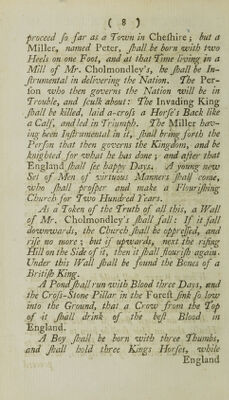 ( 8 )
proceed ſo far as a Town in Cheſhire; but a
Miller, named Peter, ſhall be born with two
Heels on one Foot, and at that Time living in a
Mill of Mr. Cholmondley's, he ſhall be In-
ſtrumental in delivering the Nation. The Per-
ſon who then governs the Nation will be in
Trouble, and ſculk about: The Invading King
ſhall be killed, laid a-croſs a Horſe's Back like
a Calf, and led in Triumph. The Miller hav-
ing been Inſtrumental in it, ſhall bring forth the
Perſon that then governs the Kingdom, and be
knighted for what he has done; and after that
England ſhall ſee happy Days. A young new
Set of Men of virtuous Manners ſhall come,
who ſhall proſper and make a Flouriſhing
Church for Two Hundred Years.
As a Token of the Truth of all this, a Wall
of Mr. Cholmondley's ſhall fall: If it fall
downwards, the Church ſhall be oppreſſed, and
riſe no more; but if upwards, next the riſing
Hill on the Side of it, then it ſhall flouriſh again.
Under this Wall ſhall be found the Bones of a
Britiſh King.
A Pond ſhall run with Blood three Days, and
the Croſs-Stone Pillar in the Foreſt ſink ſo low
into the Ground, that a Crow from the Top
of it ſhall drink of the beſt Blood in
England.
A Boy ſhall be born with three Thumbs,
and ſhall hold three Kings Horſes, while
England